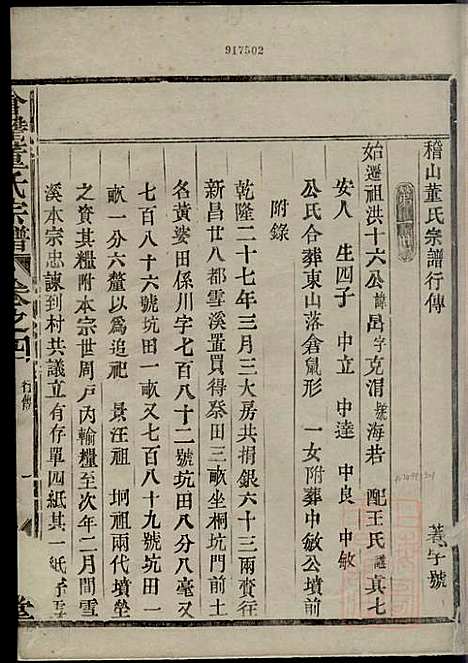 917502
稽山董氏宗譜行傳
蓍字號
始遷祖洪十六公諱嵒字克涓號海若 配王氏諱真七
安人 生四子 中立 中達 中良 中敏
公氏合葬東山落倉鼠形 一女附葬中敏公墳前
附錄
乾隆二十七年三月三大房共捐銀六十三兩賫行
新昌廿八都雪溪置買得祭田三畝坐桐坑門前土
名黃婆田係川字七百八十二號坑田八分八毫又
七百八十六號坑田一畝又七百八十九號坑田一
畝一分六釐以爲追祀 景汪祖 坰祖兩代墳塋
之資其糧附本宗世周戶丙輸糧至次年二月間雪
溪本宗忠諫到村共議立有存單四紙其一紙存雪
會嵇董氏宗譜 卷之四 行傳 一 堂